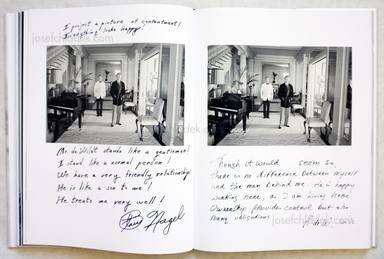 I project a picture of contentment!
Everything looks happy!
Mr. de Wildt stands like a gentleman!
I stand like a normal person!
We have a very friendly relationship!
He is like a son to me!
He treats me very well!
Nagel
Though it would seem so,
there is no difference between myself
and the man behind me. He is happy
working here, as I am living here.
Ownership provides control but also
many obligations